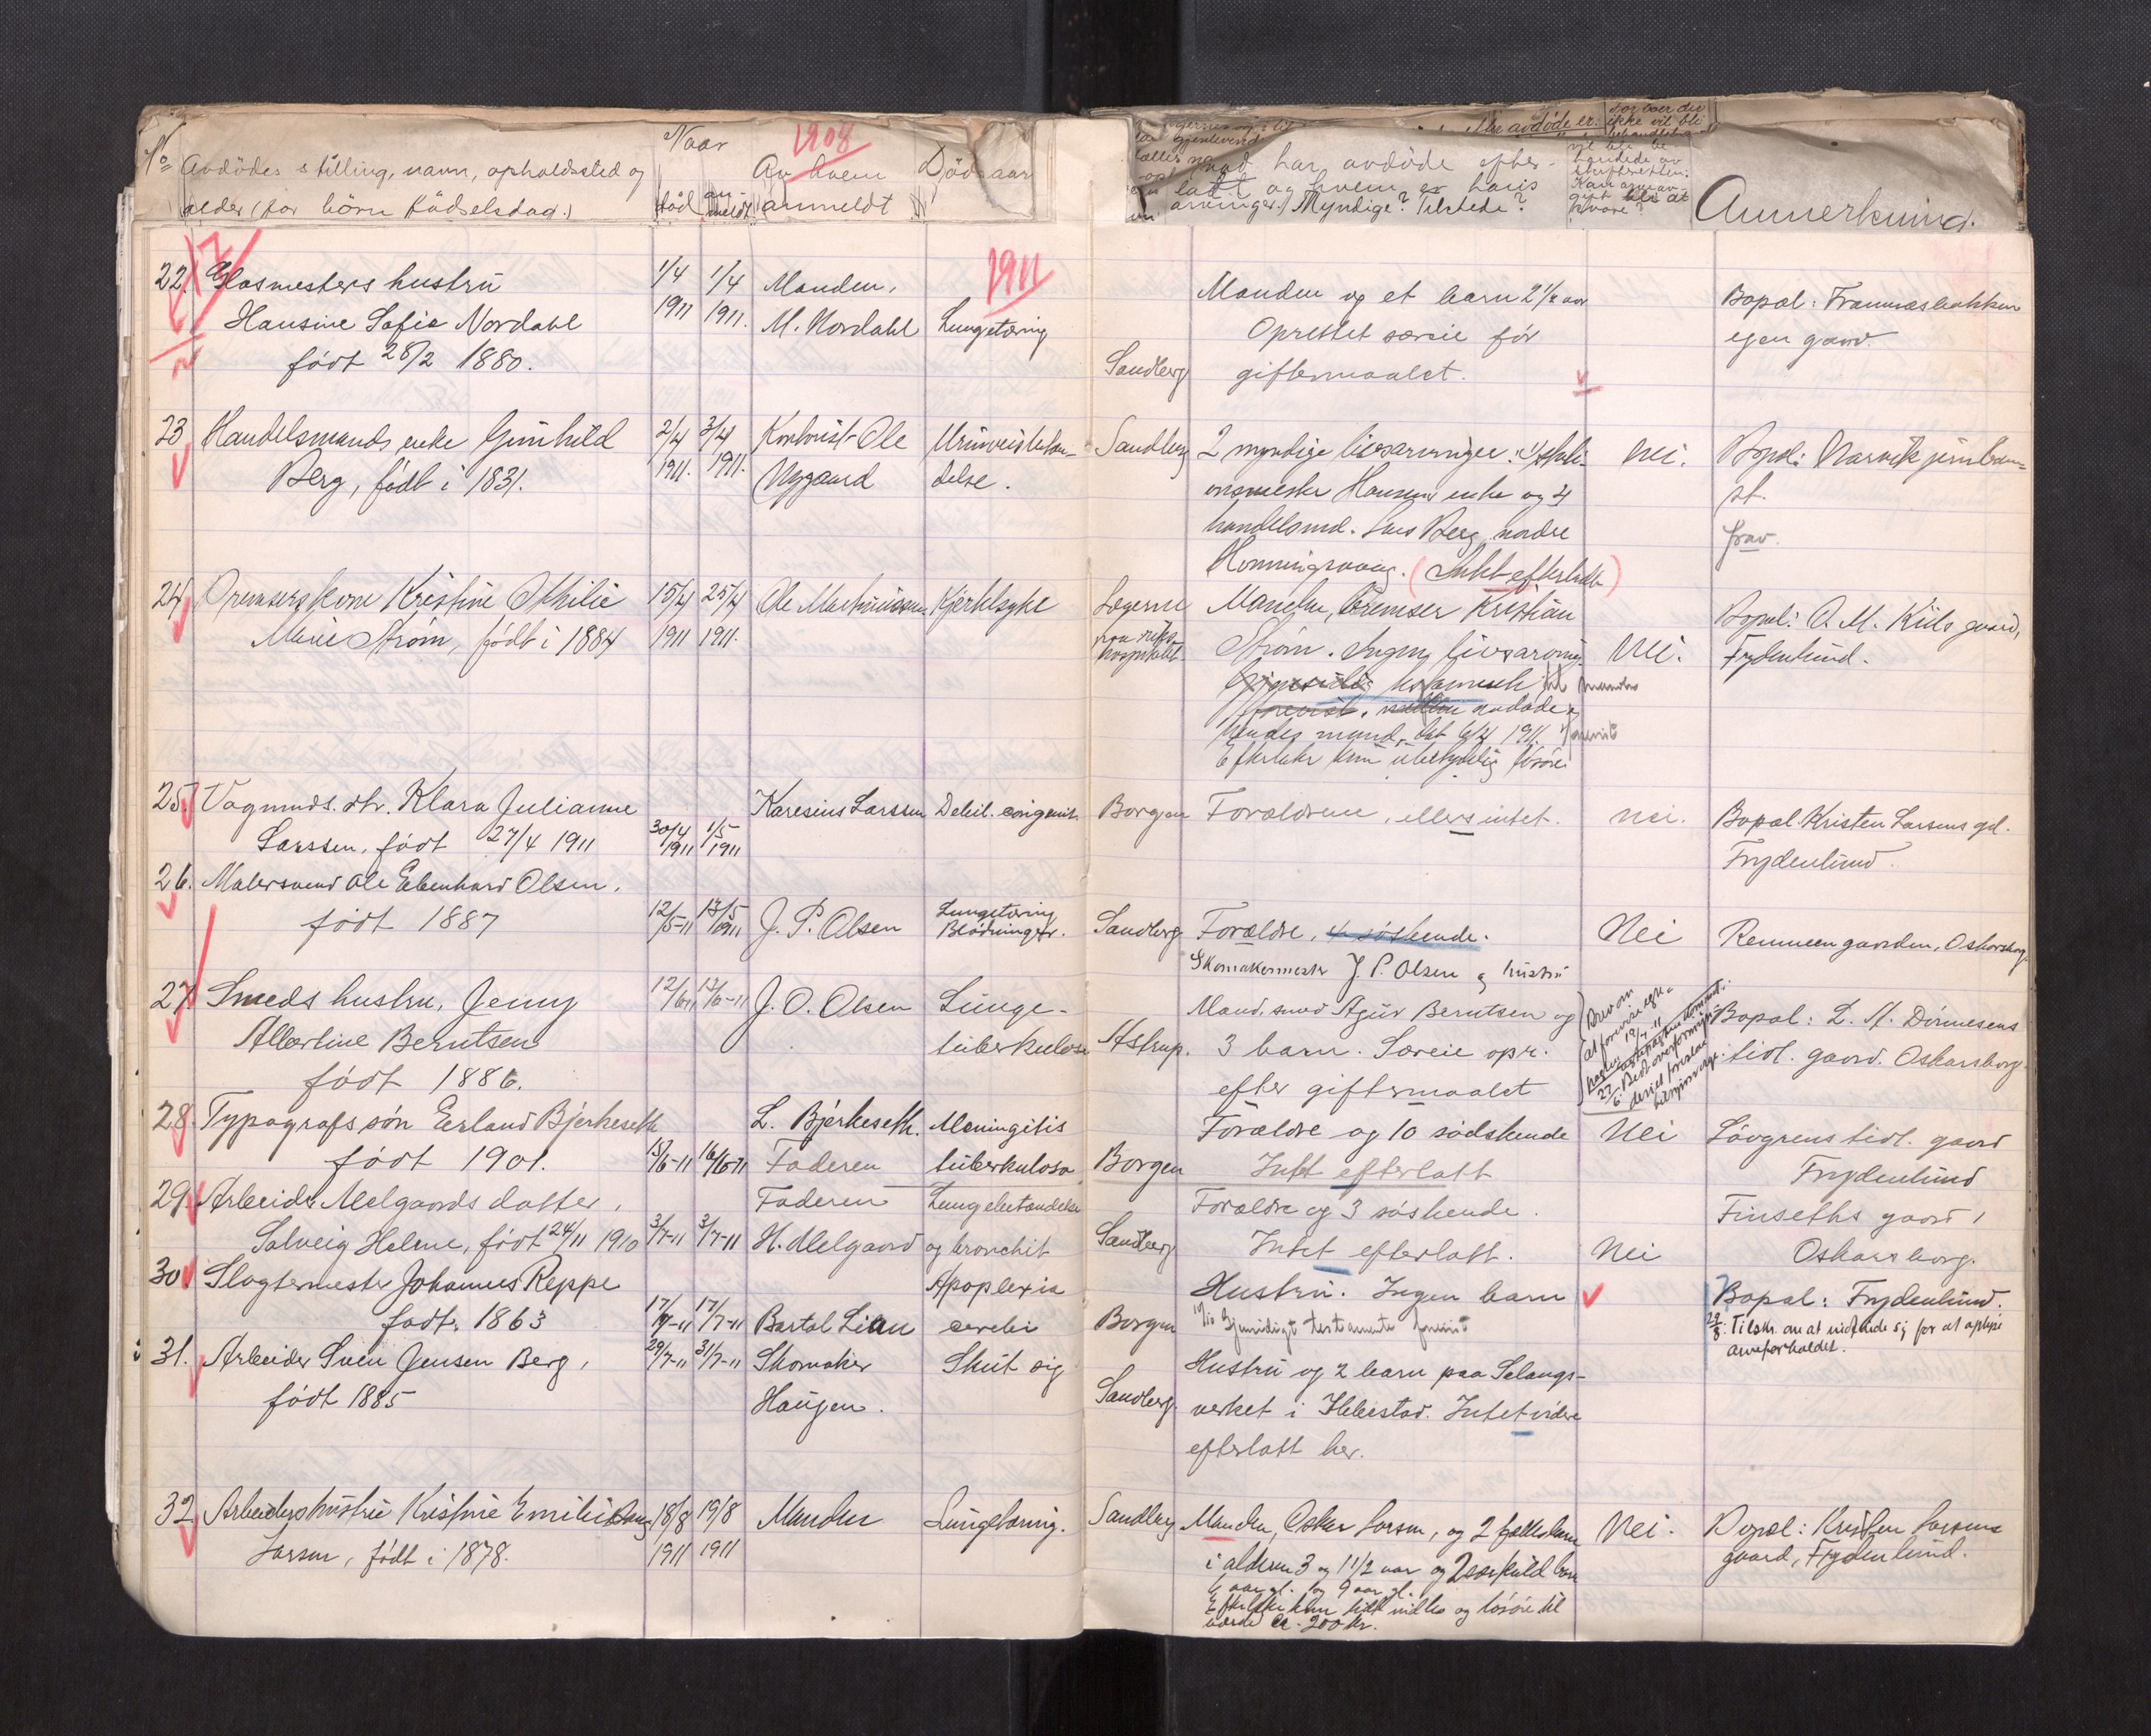 No Avdödes stilling, navn, opholdssted og
alder (for börn födselsdag.)
Naar
död an-
meldt
1908
Av hvem
anmeldt
Dödsaar
har avdöde efter-
latt og hvem er hans
arvinger? Myndige? Tilstede?
Anmerkning.
1911
22. Glasmesters hustru
Hansine Sofie Nordahl
födt 28/2 1880.
1/4 1911
1/4 1911.
Manden,
M. Nordahl
Lungetæring
Sandberg
Manden og et barn 2 1/2 aar
Oprettet særeie för
giftermaalet.
Bopæl: Framnæsbakken
egen gaard.
23 Handelsmands enke Gunhild
Berg, födt i 1831.
2/4 1911.
3/4 1911.
Ole
Nygaard
Urinveisbetæn-
delse.
Sandberg
2 myndige livsarvinger:
Hansens enke og 2)
handelsmd. Lars Berg, nordre
Honningsvaag. (Intet efterladt)
Nei.
Bopæl: Narvik jernban-
st.
frav.
24 Bremserskone Kristine Othilie
Marie Ström, födt i 1884
15/4 1911
25/4 1911.
Ole Martinussen
Hjertesyke
Lægerne
paa riks-
hospitalet
Manden, bremser Kristian
Ström. Ingen livsarving.
avdöde og
hendes mand, dat 6/4 1911.
Efterlatte kun ubetydelig lösöre
Nei.
Bopæl: O. M. Kiils gaard,
Frydenlund.
25 Vognmds. dtr. Klara Julianne
Larssen, födt 27/4 1911
30/4 1911
1/5 1911
Karesius Larssen
Debil. congenit.
Borgen
Forældrene, ellers intet.
nei.
Bopæl Kristen Larsens gd.
Frydenlund.
26. Malersvend Ole Edenhard Olsen,
födt 1887
12/5-11
13/5 1911
J. P. Olsen
Lungetæring
Blödninger.
Sandberg
Forældre, 4 söskende.
Skomakermester J. P. Olsen og hustru
Nei
Remmen gaarden, Oskarsborg
27 Smeds hustru, Jenny
Albertine Berntsen
födt 1886.
12/6 11
13/6-11
J. O. Olsen
Lunge-
tuberkulose
Astrup.
Mand, smed Agur Berntsen og
3 barn. Særeie opr.
efter giftermaalet
Brev om
at forevise egte-
pagten 19/7-11
Bopæl: L. A. Dörmesens
tidl. gaard. Oskarsborg
28. Typografs sön Erland Bjerkeseth
födt 1901.
15/6-11
16/6-11
L. Bjerkeseth.
Faderen
Meningitis
tuberkulosa
Borgen
Forældre og 10 södskende
Intet efterlatt
Nei
Lövgrens tidl. gaard
Frydenlund
29. Arbeider Melgaards datter,
Solveig Helene, födt 24/11 1910
3/7-11
3/7-11
Faderen
H. Melgaard
Lungebetændelse
og bronchit
Sandberg
Forældre og 3 söskende.
Intet efterlatt.
Nei
Finseths gaard,
Oskarsborg.
30 Slagtermester Johannes Reppe
födt: 1863
17/7-11
17/7-11
Bartol Lian
Apoplexia
cerebi
Borgen
Hustru. Ingen barn
19/10 Gjensidigt testamente forevist
Bopæl: Frydenlund.
29/8: Tilskr. om at indfinde sig for at oplyse
arveforholdet.
31. Arbeider Sven Jensen Berg,
födt 1885
29/7-11
31/7-11
Skomaker
Haugen.
Skut sig
Sandberg.
Hustru og 2 barn paa Salangs-
verket i Ibbestad. Intet videre
efterlatt her.
32 Arbeiders hustru Kristine Emilie
Larsen, födt i 1878.
18/8 1911
19/8 1911
Manden
Lungetæring.
Sandberg
Manden, Oskar Larsen, og 2 fællesbarn
i alderen 3 og 1 1/2 aar og 2 særkuld barn
6 aar gl. og 9 aar gl.
Efterlatte kun lidt indbo og lösöre til
værdi ca. 200 kr.
Nei.
Bopæl: Kristen Larsens
gaard, Frydenlund.